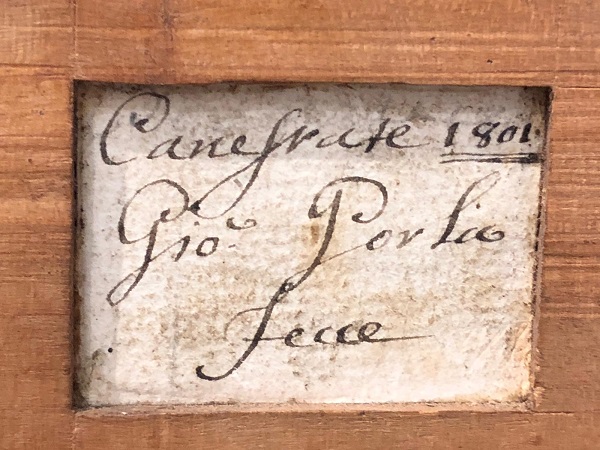 Canegrate 1801.
Gio. Porlia
Fecce